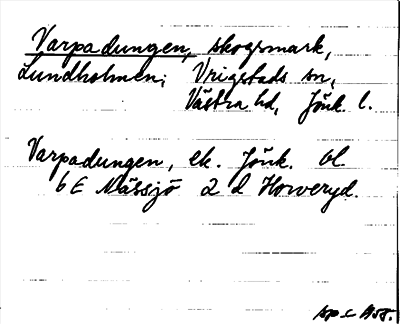 Varpadungen, skogsmark,
Lundholmen, Vrigstads sn,
Västra hd, Jönk. l.
Varpadungen, ek. Jönk. bl.
6 E Nässjö 2 d Hovveryd.